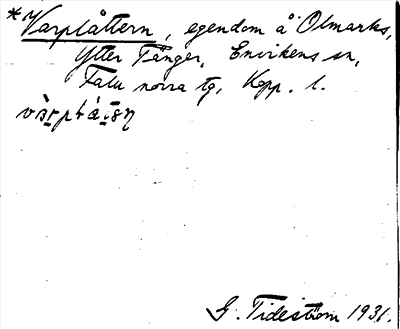 *Varplåttern, egendom å Olmarks,
Ytter Tänger, Envikens sn,
Falu norra tg, Kopp. l.
G. Tideström 1931.